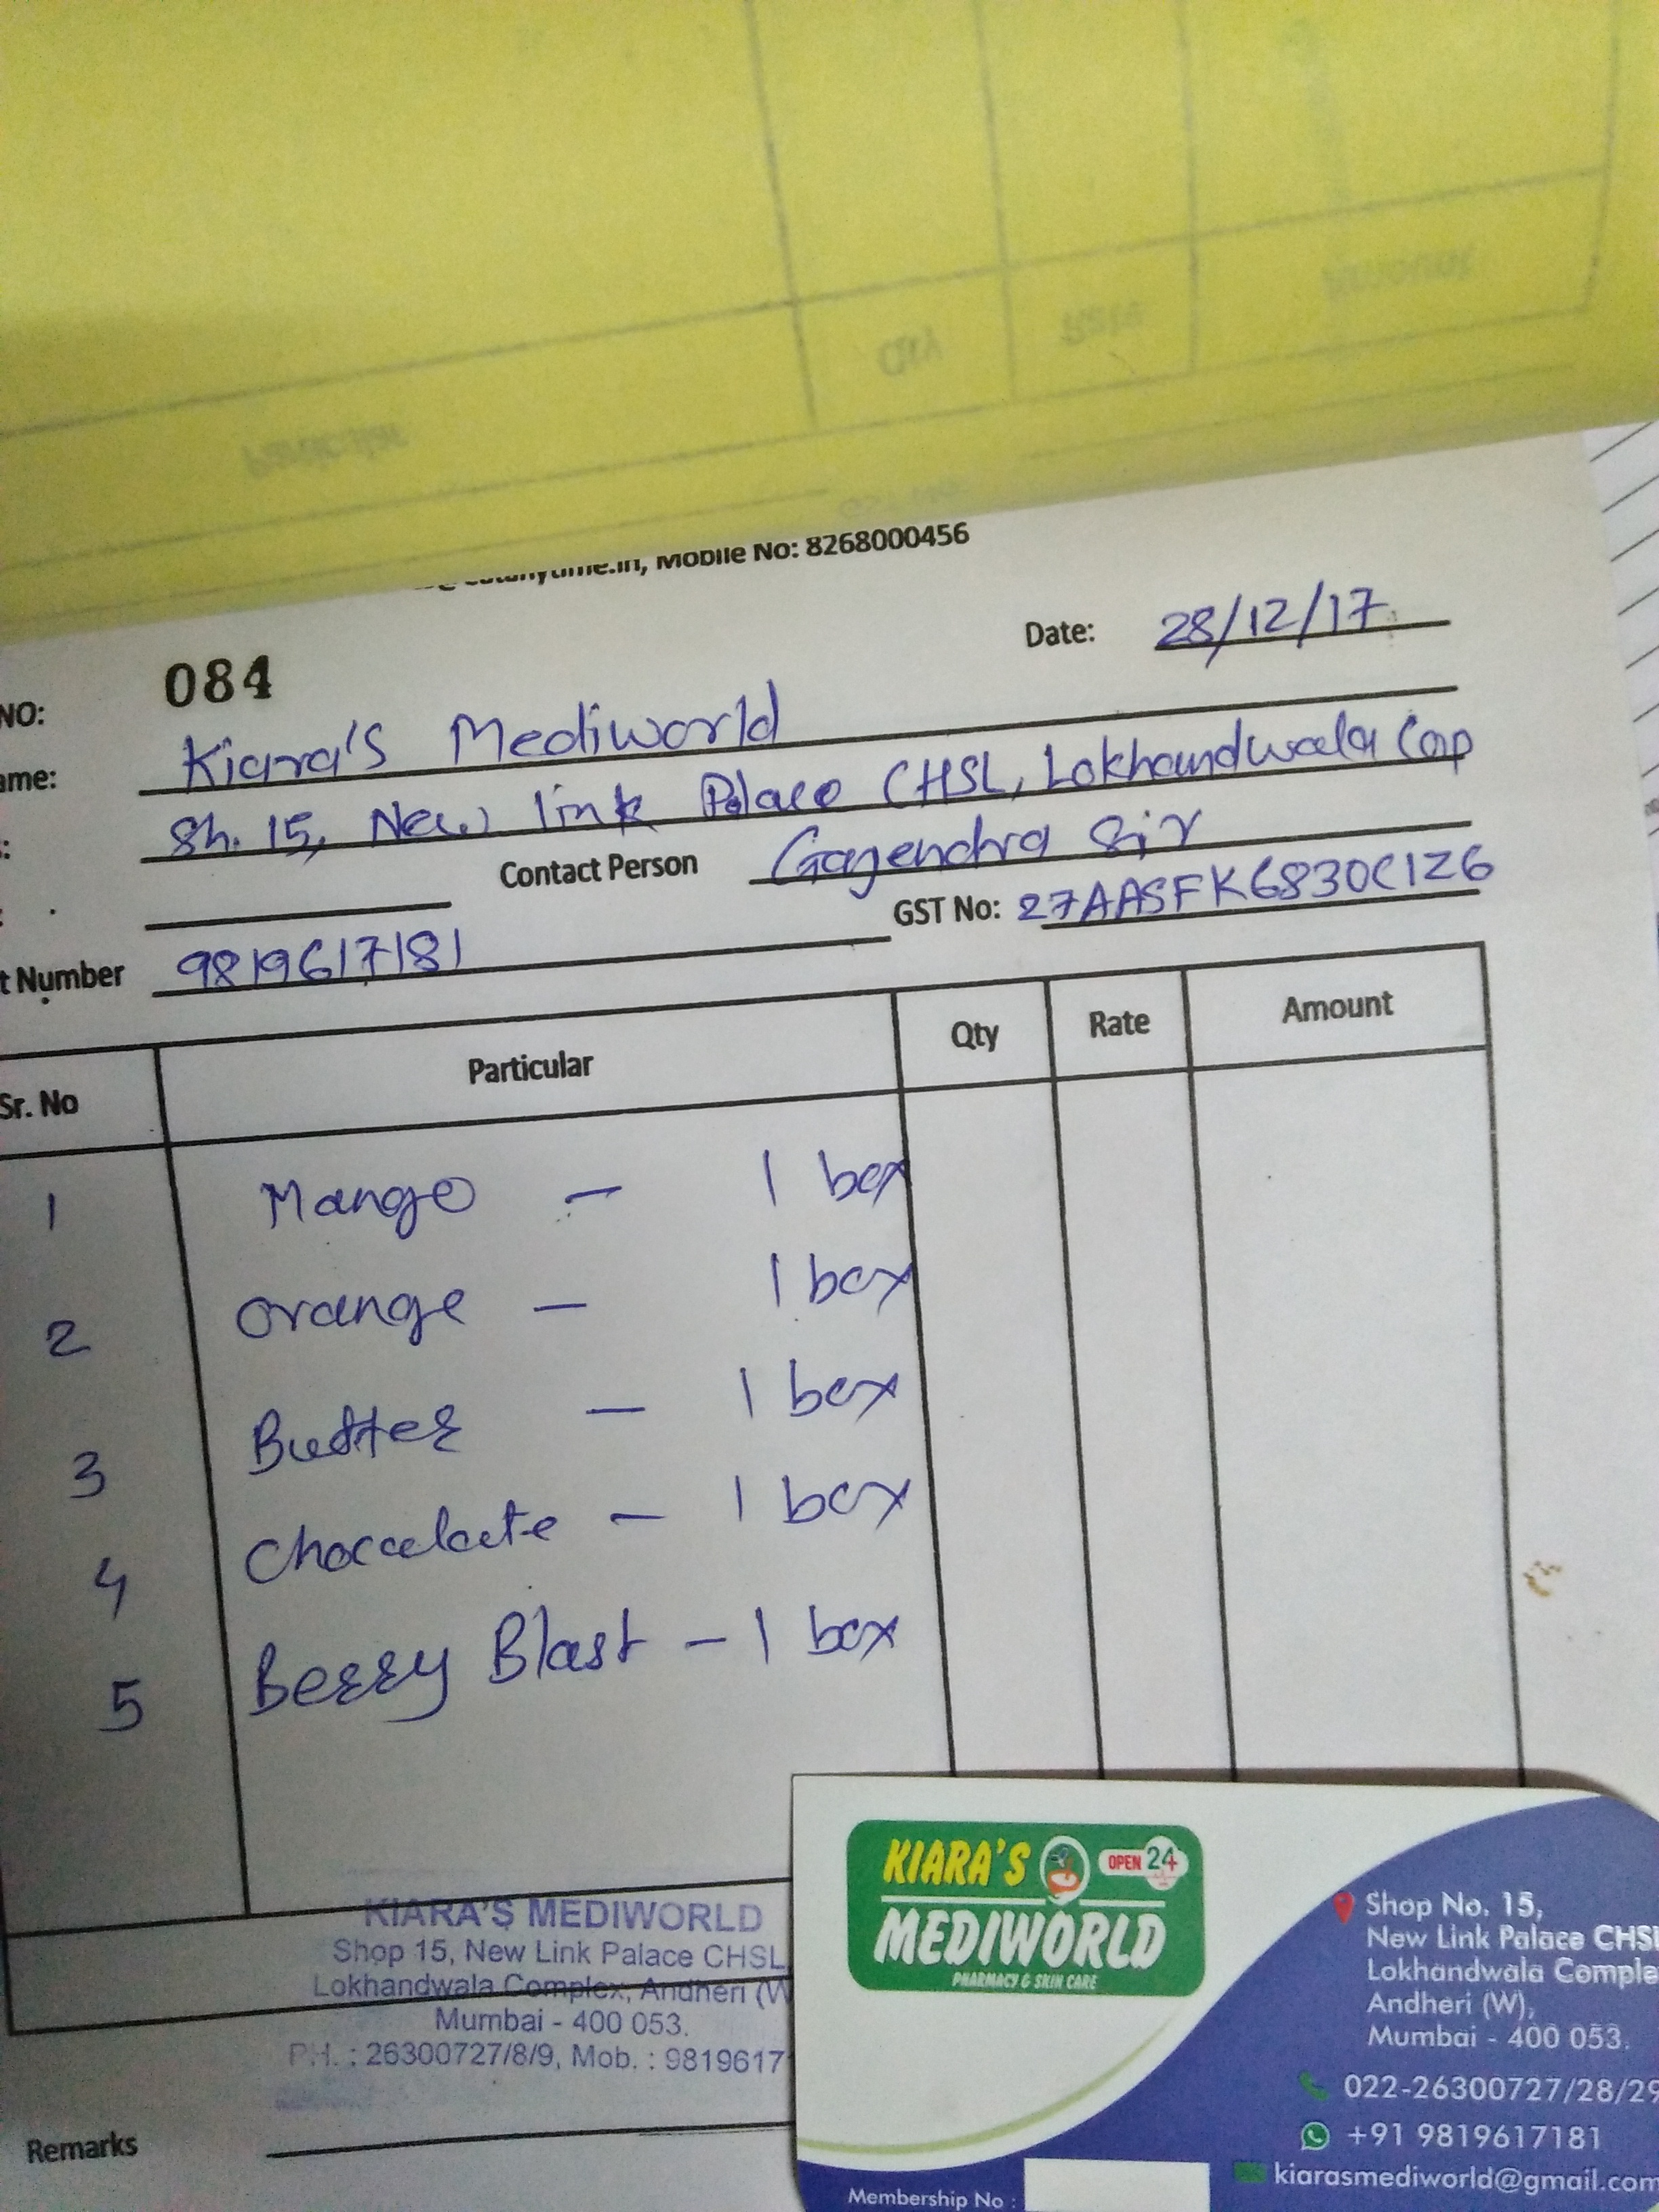 Mobile No: 8268000456
Date: 28/12/17
NO: 084
ame: Kiara's Mediworld
: Sh. 15, New link Palace CHSL, Lokhandwala Cop
Contact Person Gajendra Sir
t Number 9819617181 GST No: 27AASFK6830C1Z6
Sr. No Particular Qty Rate Amount
1 Mango - 1 box
2 Orange - 1 box
3 Butter - 1 box
4 Chocalate - 1 box
5 Berry Blast - 1 box
KIARA'S MEDIWORLD
Shop 15, New Link Palace CHSL
Lokhandwala Complex, Andheri (W
Mumbai - 400 053.
PH. : 26300727/8/9, Mob. : 9819617
Remarks
KIARA'S OPEN 24
MEDIWORLD
PHARMACY & SKIN CARE
Shop No. 15,
New Link Palace CHSL
Lokhandwala Comple
Andheri (W),
Mumbai - 400 053.
022-26300727/28/29
+91 9819617181
kiarasmediworld@gmail.com
Membership No :
Particular Qty Rate Amount